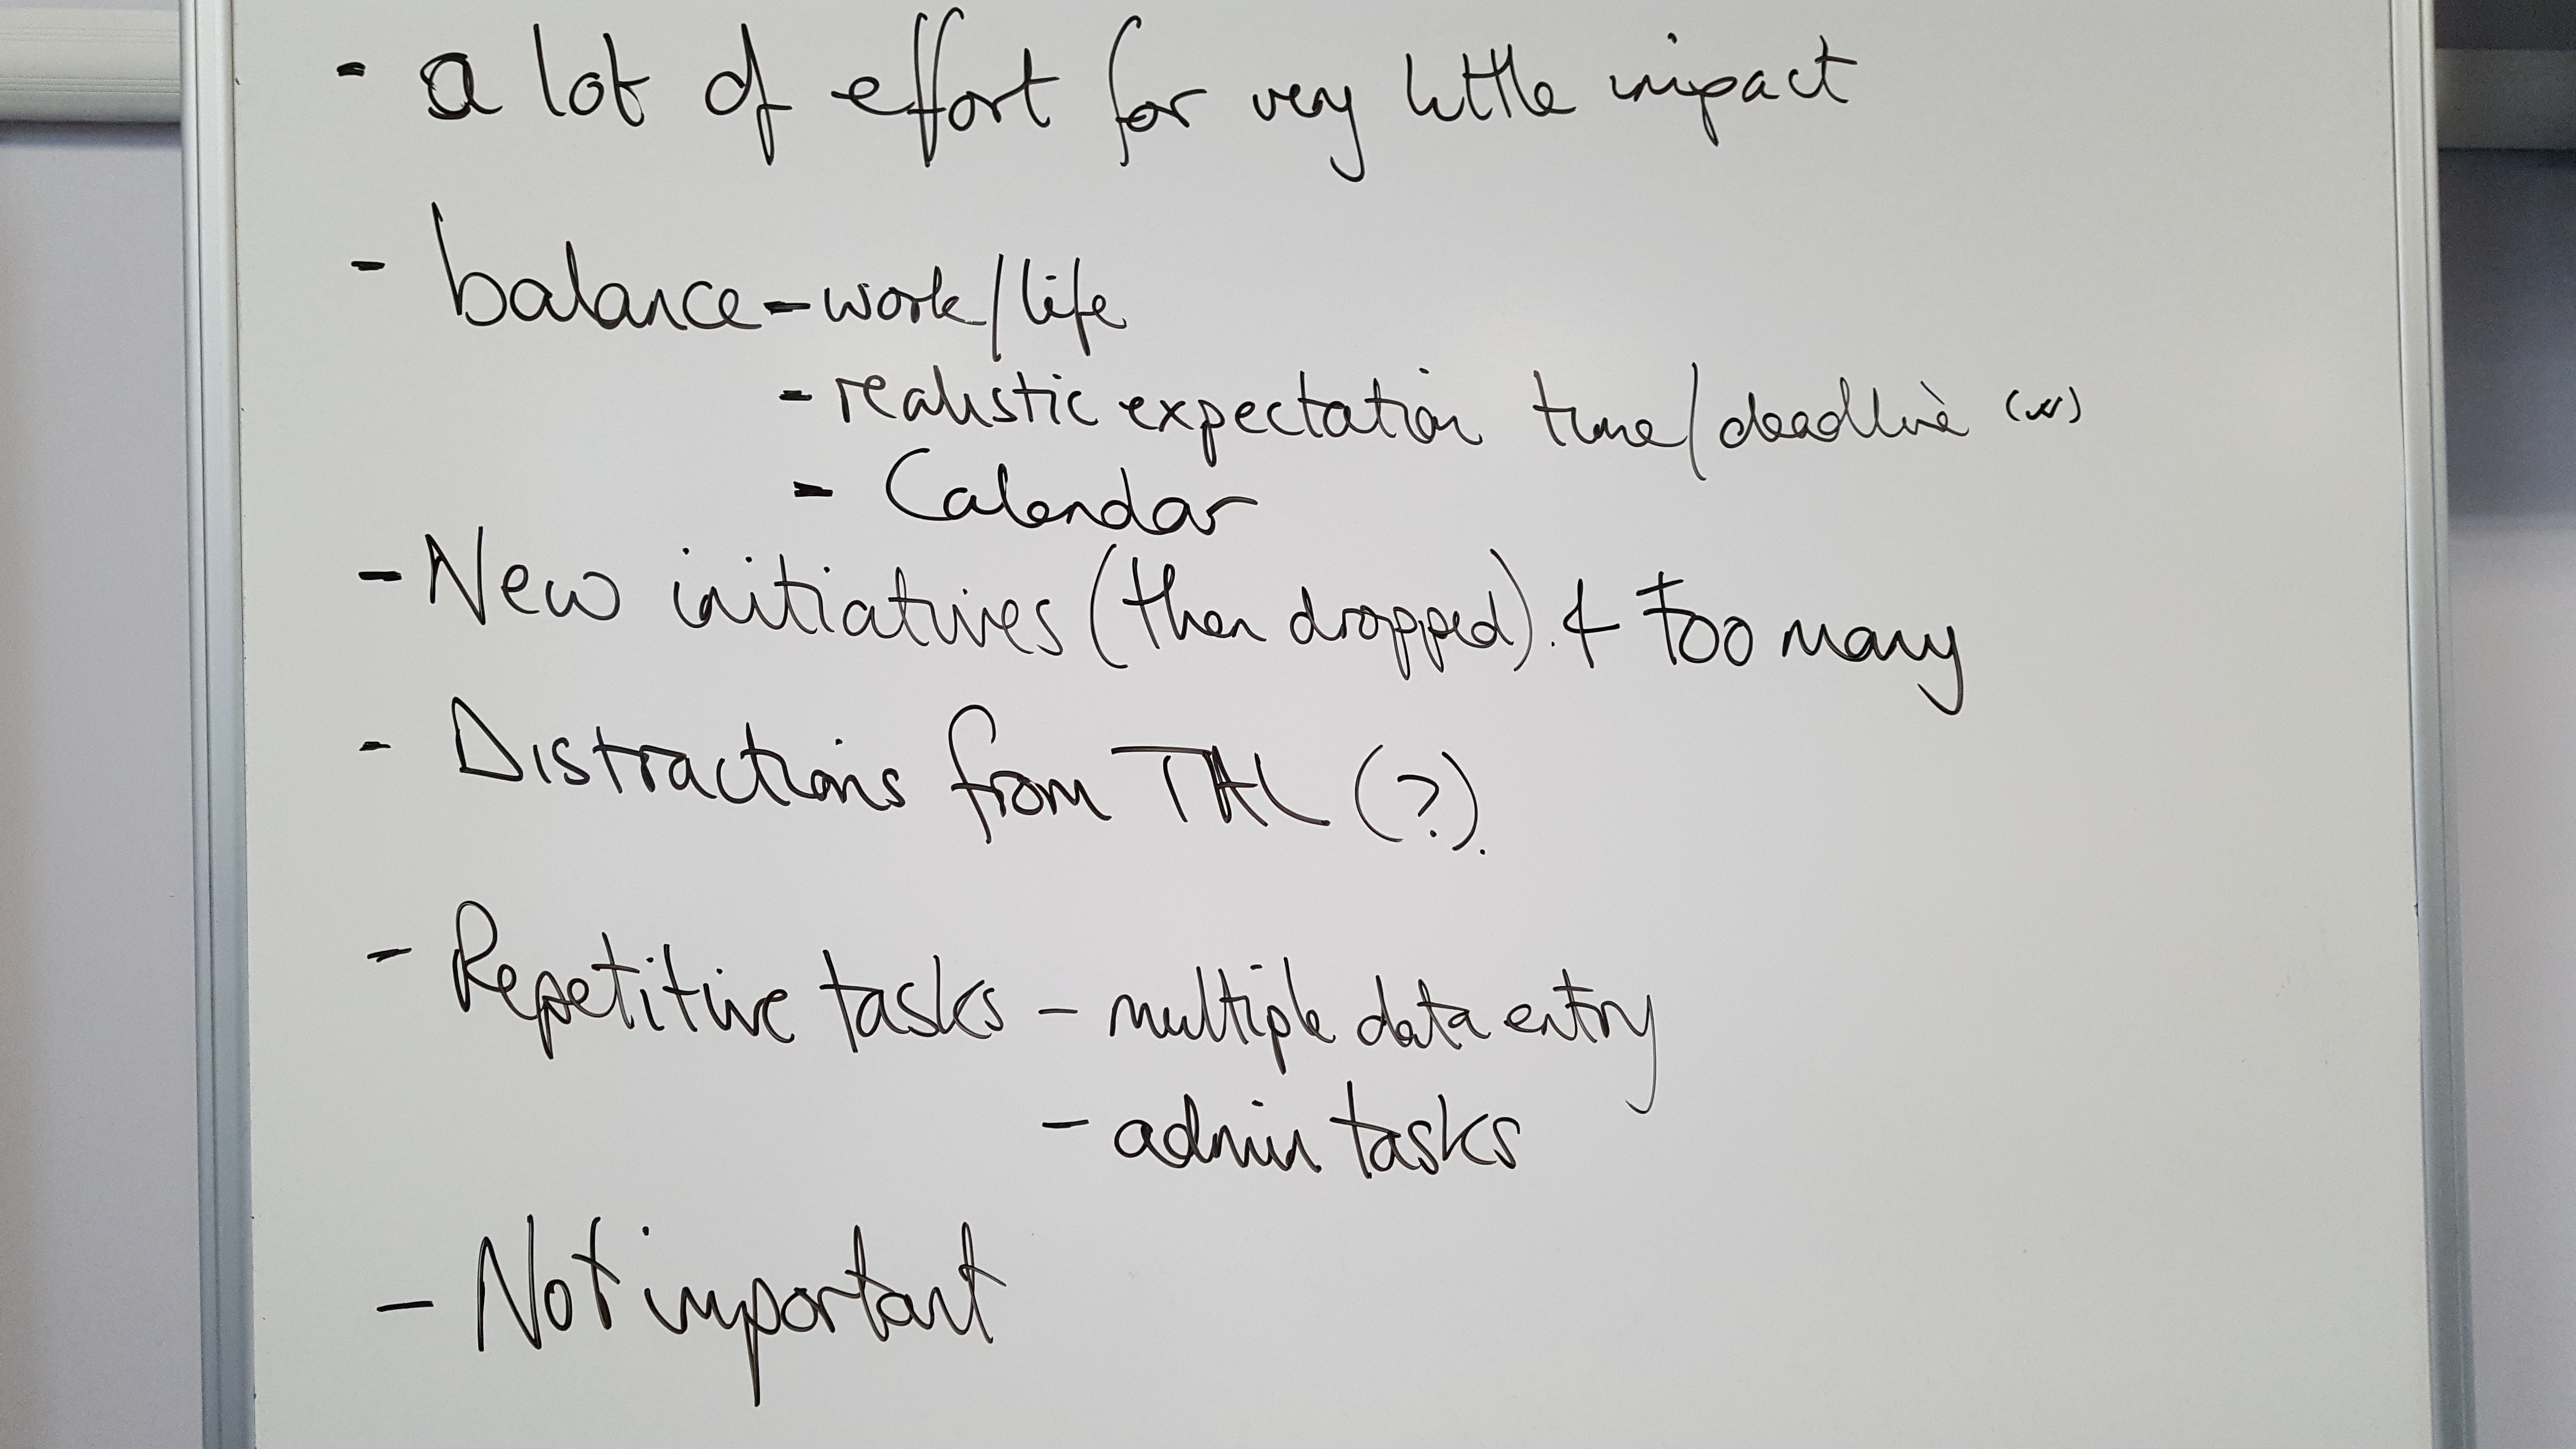 - a lot of effort for very little impact
- balance - work/life
- realistic expectation time/deadline
- Calendar
- New initiatives (then dropped). & too many
- Distractions from T&L (?).
- Repetitive tasks - multiple data entry
- admin tasks
- Not important